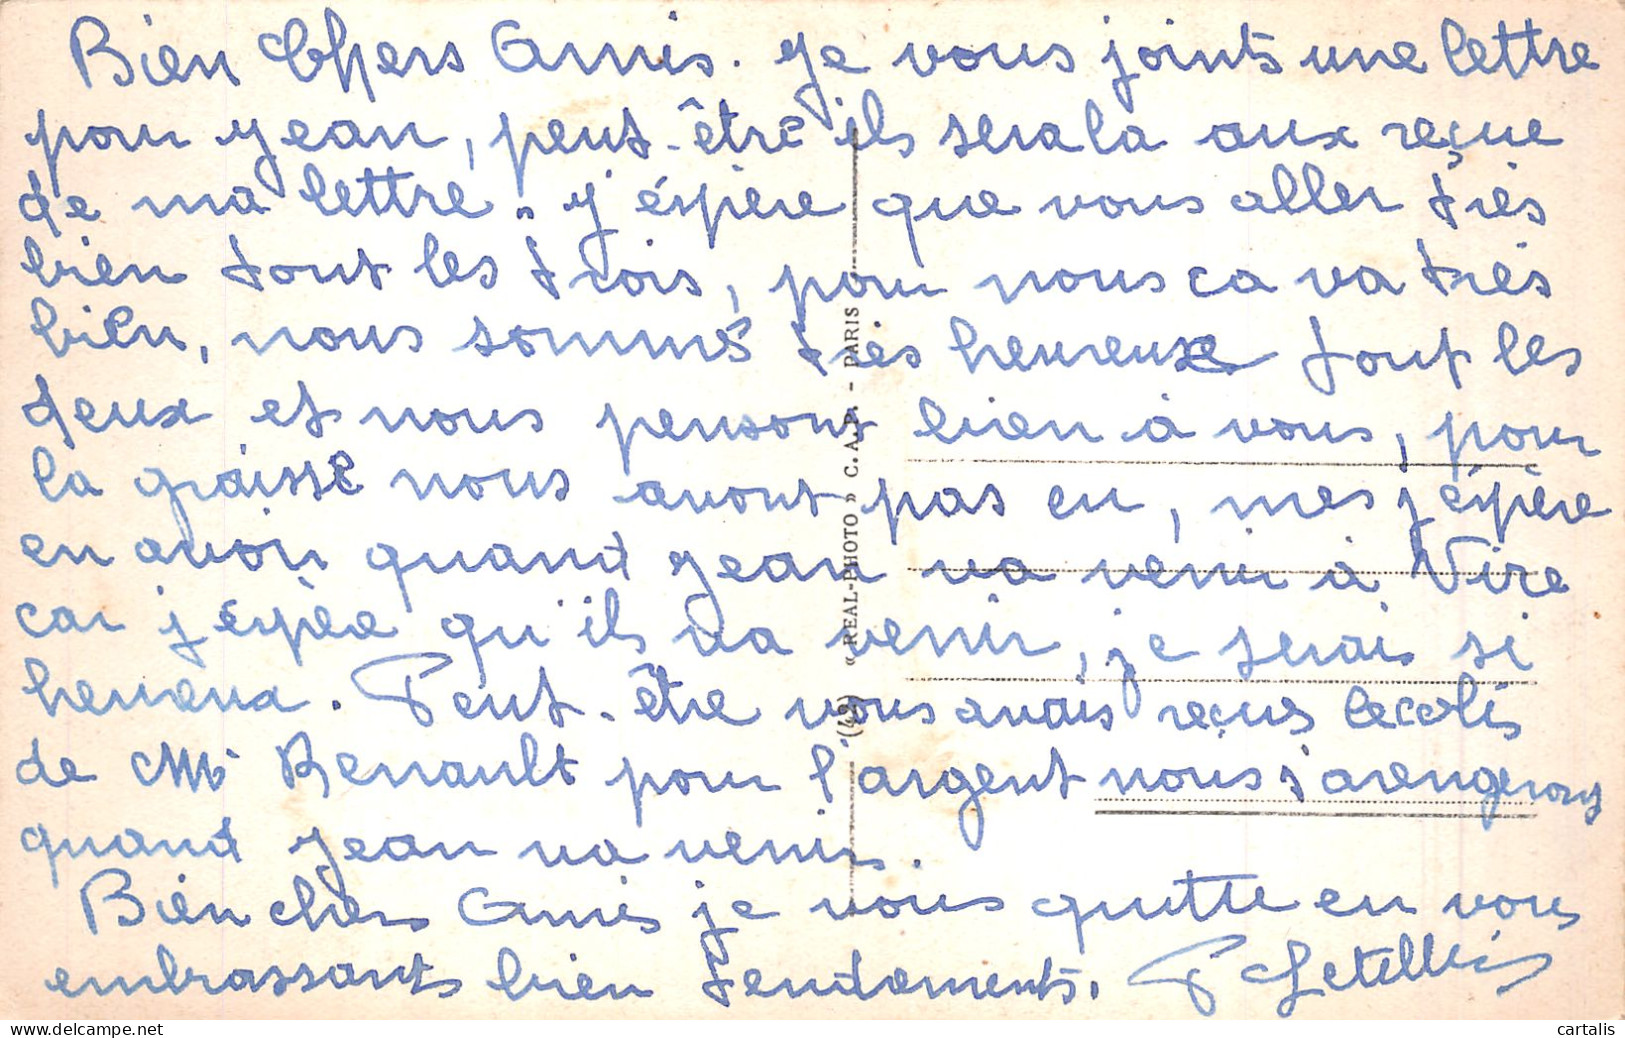 Bien Chers Amis. Je vous joints une lettre
pour Jean, peut-être ils sera la aux reçue
de ma lettre. J'éspère que vous aller très
bien tout les trois, pour nous ca va très
bien, nous sommés très heureuse tout les
deux et nous pensons bien à vous, pour
la graisse nous avont pas eu, mes j'éspère
en avoir quand Jean va venir à Vire
car j'éspère qu'ils va venir, je serais si
heureux. Peut-être vous avais reçus le colis
de Mr Renault pour l'argent nous s'arengerons
quand Jean va venir.
Bien cher Amis je vous quitte en vous
embrassants bien tendements. P Letellier
(49) « REAL-PHOTO » C. A. P. - PARIS
cartalis